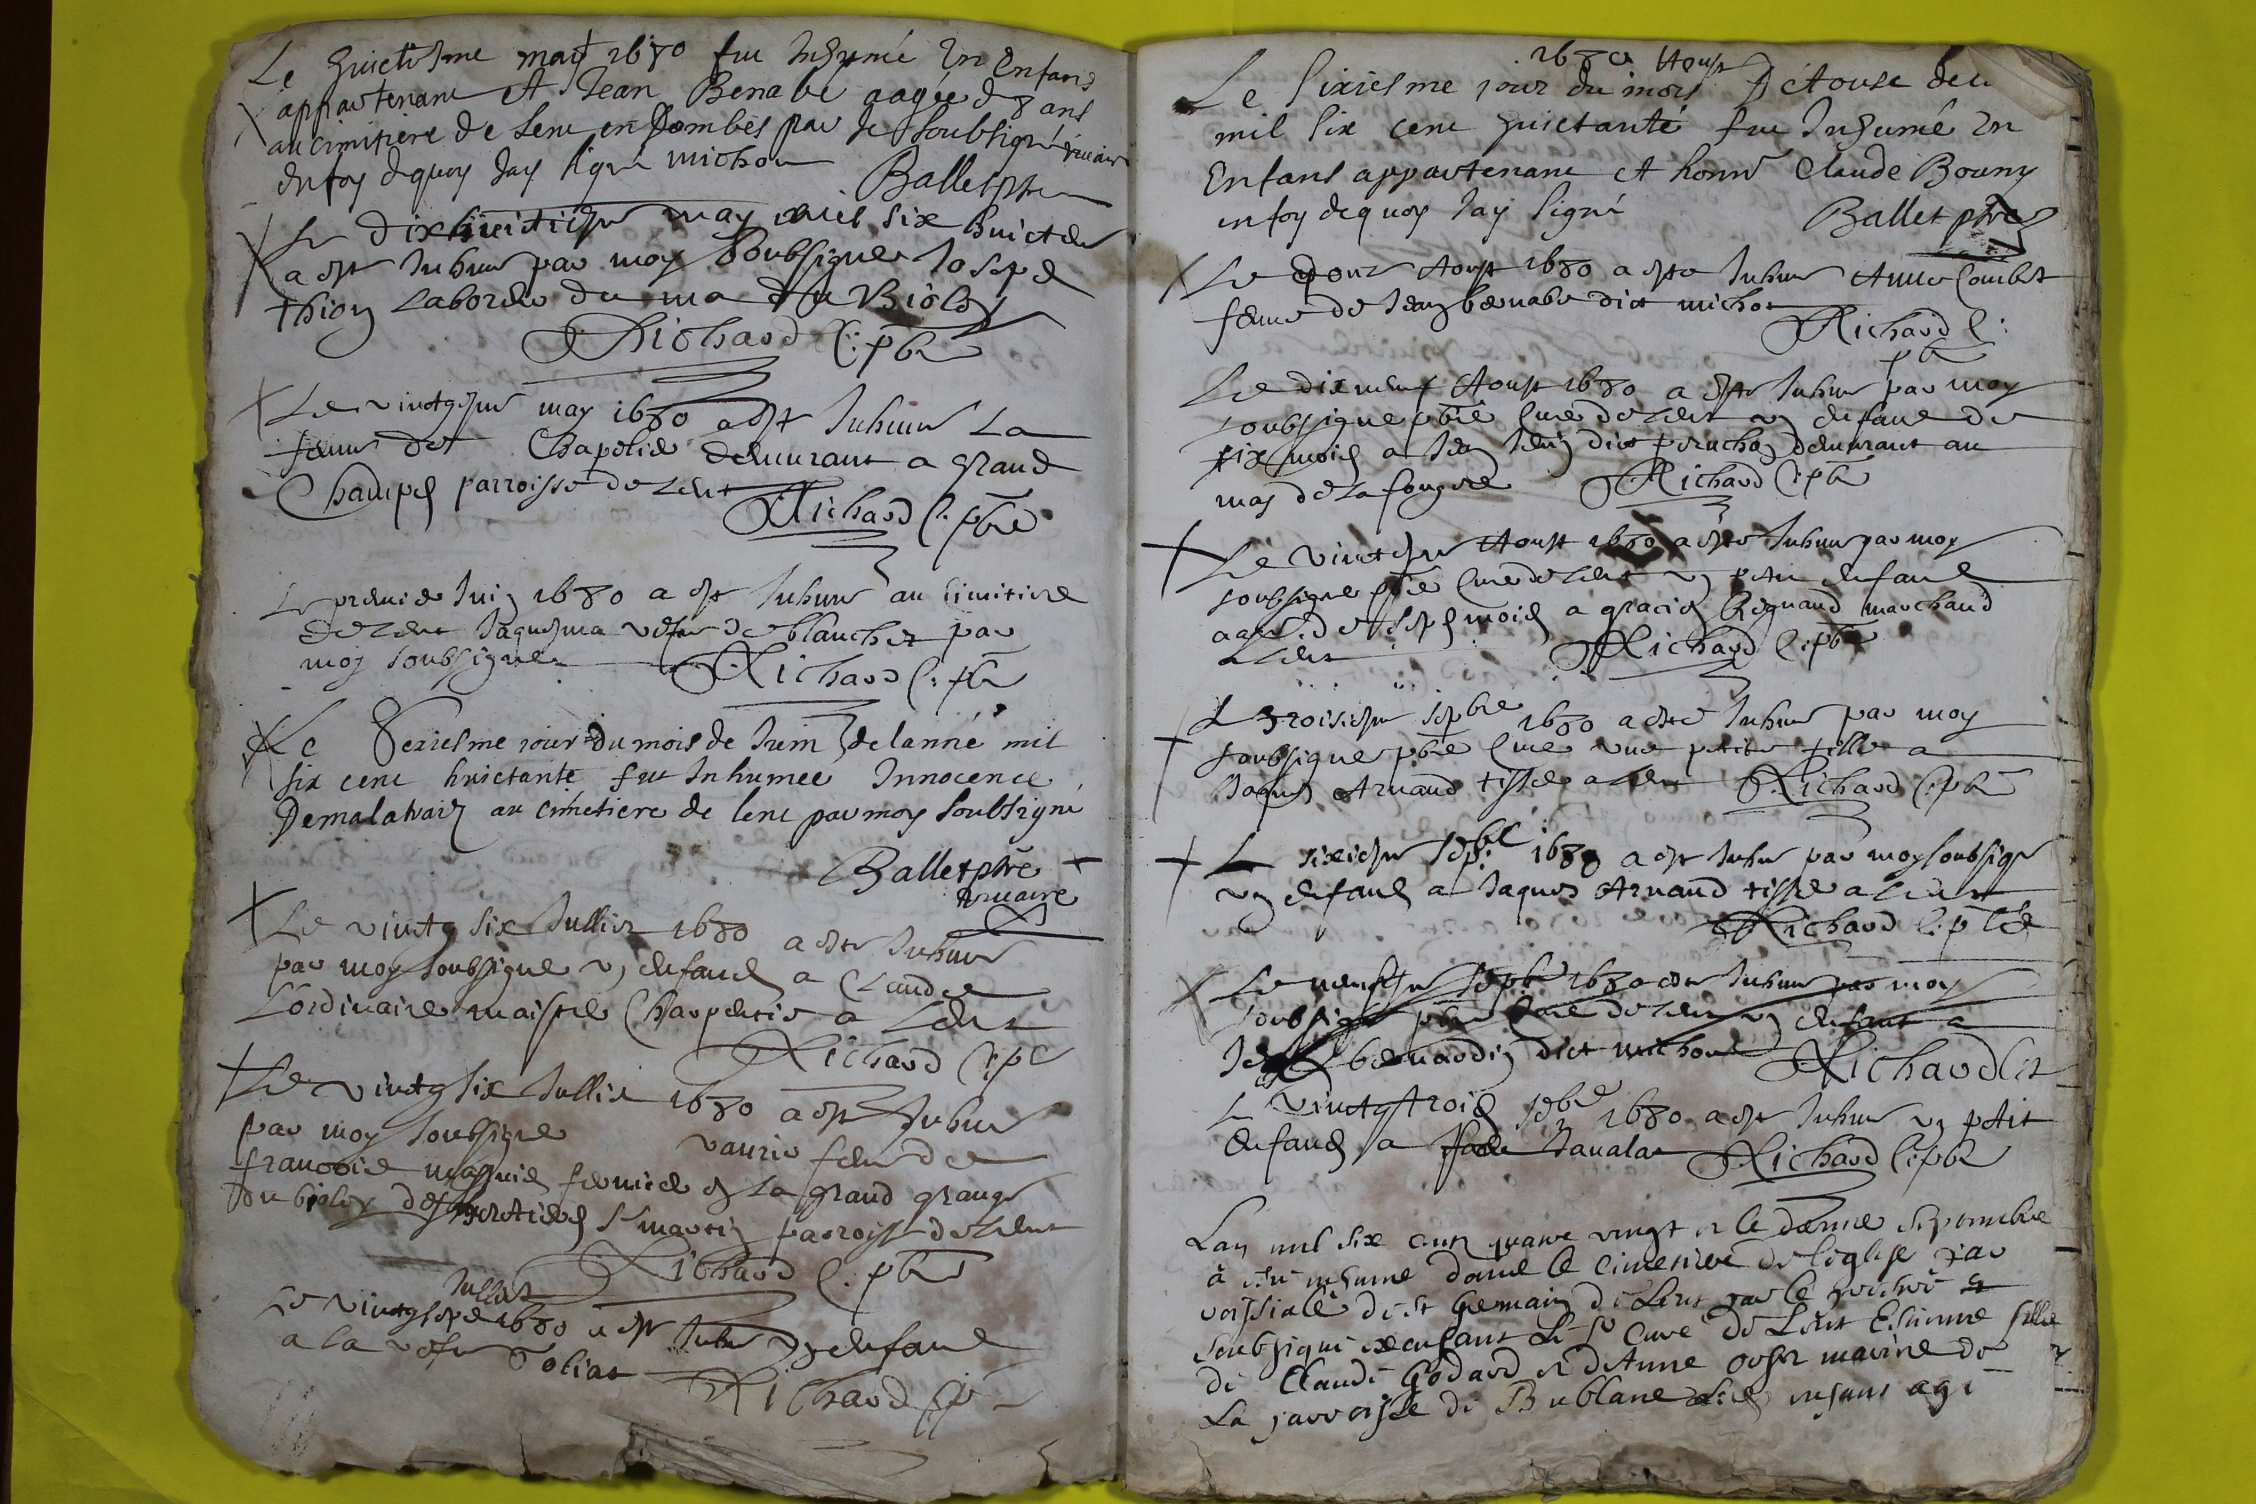 Le huictiesme may 1680 fut Inhumé Un Enfans
appartenant A Jean Benabé aagée d 8 ans
au cimitiere de Lent en Dombes par Je soubsigné vicaire
en foy dequoy Jay signé michon Ballet ptre
Le dixhuictiesme may mil six huictante
a este Inhume par moy soubsigne Josepe
thion Laboreur du ma du Bioley
Richard C. pbre
Le vintgiesme may 1680 a este Inhume La
femme de Chapelie demeurant a grand
Champs parroisse de Lent
Richard C. pbre
Le premie Juin 1680 a este Inhume au simitiere
de Lent Jaquema vefve de blanchet par
moy soubsigne Richard C. pbre
Le Sexiesme jour du mois de Juin de lanné mil
six cent huictante fut Inhumeé Innocence
Demalatrait au cimetiere de lent par moy soubsigné
Ballet ptre
vicaire
Le vintg six Jullier 1680 a este Inhume
par moy soubsigne un enfand a Claude
Lordinaire maistre Charpentie a Lent
Richard C. p
Le vintg six Jullie 1680 a este Inhume
par moy soubsigne
vaurie feme de
francois fermier en La grand grange
du bioley St martin parroisse de Lent
Richard C. pbre
Jullier
Le vintg sept 1680 a este Inhume un enfand
a la vefve Richard C. p
1680 Aoust
Le sixiesme jour du mois
mil six cent huictante fut Inhumé Un
Enfans appartenant A honn Claude Bouny
en foy dequoy Jay signé Ballet ptre
Le Aoust 1680 a este Inhume Anne Combet
femme de Jean bernabe dict michon
Richard C.
pbre
Le dixneuf Aoust 1680 a este Inhume par moy
soubsigne pbre Cure de Lent un enfant de
six mois a Jean dict peruchon demeurant au
mas de La fougere Richard C. pbre
Le vintiesme Aoust 1680 a este Inhume par moy
soubsigne pbre Cure de Lent un petit enfand
aage de sept mois a gracien Reynaud marchand
a Lent Richard C. pbre
Le troisiesme sepbre 1680 a este Inhume par moy
soubsigne pbre Cure une petite fille a
Jaques Arnaud tissie a Lent Richard C. pbre
Le sixiesme sepbre 1680 a este Inhume par moy soubsigne
un enfand a Jaques Arnaud tissie a Lent
Richard C. pbre
Le neufiesme sepbre 1680 a este Inhume par moy
soubsigne pbre Cure de Lent un enfant a
bernardin dict michon Richard
Le vintgtrois sepbre 1680 a este Inhume un petit
enfand a Janalat Richard C. pbre
Lan mil six cents quatre vingt et le septembre
à esté inhumé dans le cimetiere de leglise par
roissiale de St Germain de Lent par le
soubsigné en absence de Sr Curé de Lent Estienne fille
de Claude Godard et dAnne mariné de
La parroisse de Bublane